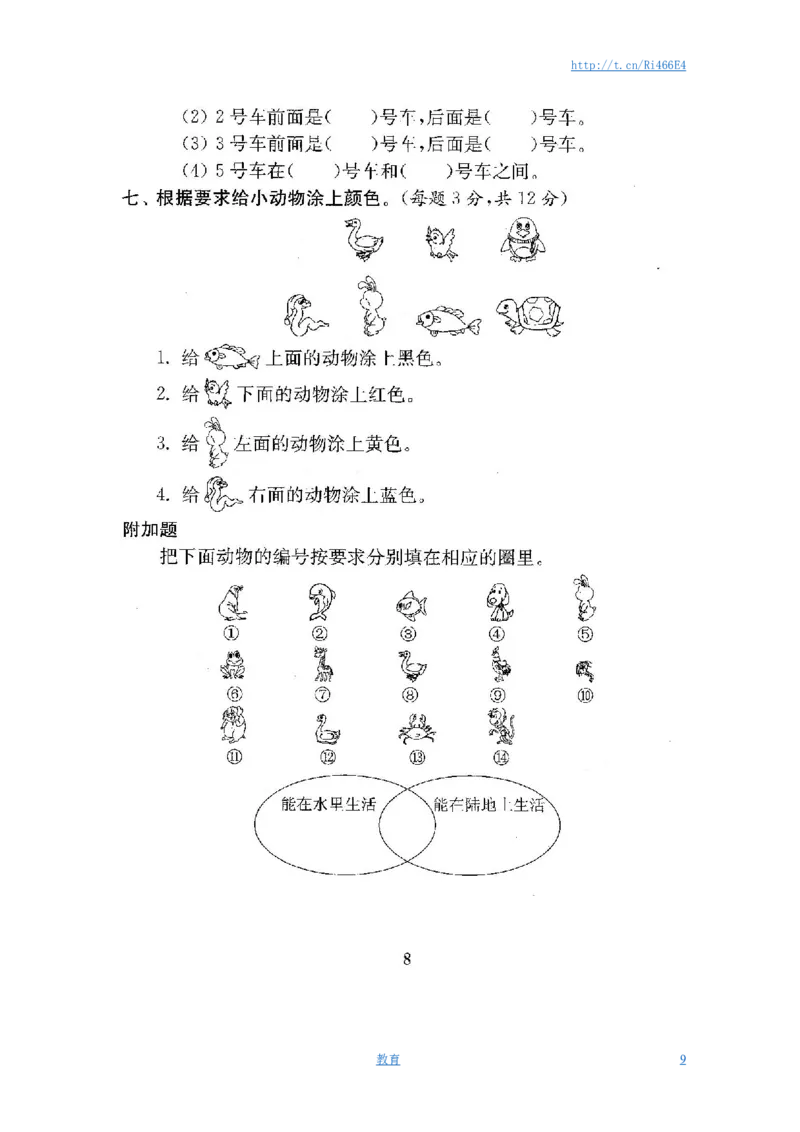 http://t.cn/Ri466E4
(2) 2号车前面是(　　)号车,后面是(　　)号车。
(3) 3号车前面是(　　)号车,后面是(　　)号车。
(4) 5号车在(　　)号车和(　　)号车之间。
七、根据要求给小动物涂上颜色。(每题3分,共12分)
1. 给 上面的动物涂上黑色。
2. 给 下面的动物涂上红色。
3. 给 左面的动物涂上黄色。
4. 给 右面的动物涂上蓝色。
附加题
把下面动物的编号按要求分别填在相应的圈里。
① ② ③ ④ ⑤
⑥ ⑦ ⑧ ⑨ ⑩
⑪ ⑫ ⑬ ⑭
能在水里生活 能在陆地上生活
8
教育 9